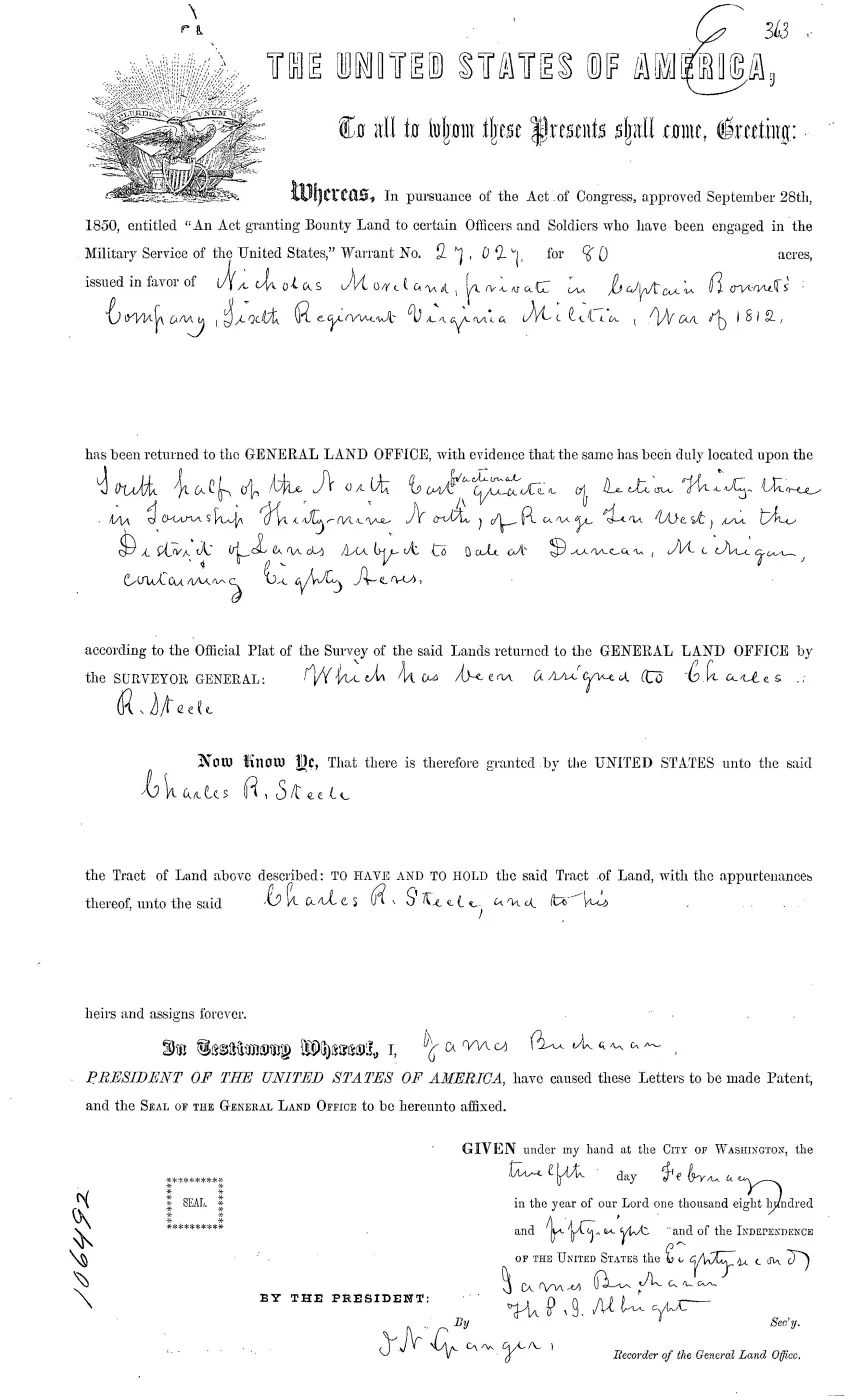 363
E PLURIBUS UNUM
THE UNITED STATES OF AMERICA,
To all to whom these Presents shall come, Greeting:
Whereas, In pursuance of the Act of Congress, approved September 28th,
1850, entitled “An Act granting Bounty Land to certain Officers and Soldiers who have been engaged in the
Military Service of the United States,” Warrant No. 27,027, for 80 acres,
issued in favor of Nicholas Moreland, private in Captain Bonnets'
Company, Sixth Regiment Virginia Militia, War of 1812,
has been returned to the GENERAL LAND OFFICE, with evidence that the same has been duly located upon the
South half of the North East fractional quarter of Section Thirty-three
in Township Thirty-nine North, of Range Ten West, in the
District of Lands subject to sale at Duncan, Michigan,
containing Eighty Acres.
according to the Official Plat of the Survey of the said Lands returned to the GENERAL LAND OFFICE by
the SURVEYOR GENERAL: Which has been assigned to Charles
R. Steele
Now Know Ye, That there is therefore granted by the UNITED STATES unto the said
Charles R. Steele
the Tract of Land above described: TO HAVE AND TO HOLD the said Tract of Land, with the appurtenances
thereof, unto the said Charles R. Steele, and to his
heirs and assigns forever.
In Testimony Whereof, I, James Buchanan,
PRESIDENT OF THE UNITED STATES OF AMERICA, have caused these Letters to be made Patent,
and the SEAL OF THE GENERAL LAND OFFICE to be hereunto affixed.
GIVEN under my hand at the CITY OF WASHINGTON, the
twelfth day February
in the year of our Lord one thousand eight hundred
and fifty-eight and of the INDEPENDENCE
OF THE UNITED STATES the Eighty second
SEAL.
106492
BY THE PRESIDENT: James Buchanan
By Albright Sec'y.
J N Granger,
Recorder of the General Land Office.